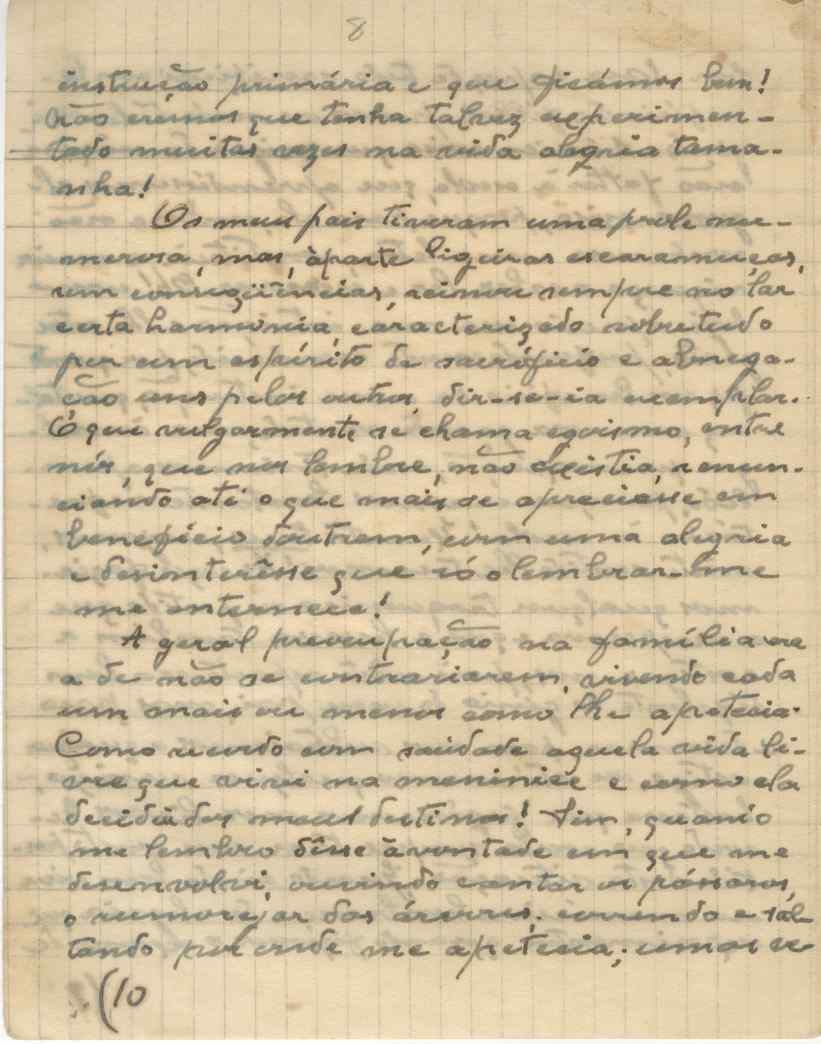 8
instrução primária e que ficámos bem!
Não cremos que tenha talvez experimen-
tado muitas vezes na vida alegria tama-
nha!
Os meus pais tiveram uma prole nu-
merosa, mas, àparte ligeiras escaramuças,
sem conseqüências, reinou sempre no lar
certa harmonia, caracterizado sobretudo
por um espírito de sacrifício e abnega-
ção uns pelos outros, dir-se-ia exemplar.
O que vulgarmente se chama egoismo, entre
nós, que nos lembre, não existia, renun-
ciando até o que mais se apreciasse em
benefício doutrem, com uma alegria
e desinterêsse que só o lembrar-me
me enternece!
A geral preocupação na família era
a de não se contrariarem, vivendo cada
um mais ou menos como lhe apetecia.
Como recordo com saüdade aquela vida li-
vre que vivi na meninice e como ela
decidiu dos meus destinos! Sim, quando
me lembro dêsse àvontade em que me
desenvolvi, ouvindo cantar os pássaros,
o rumorejar das árvores; correndo e sal-
tando por onde me apetecia; umas ve-
(10